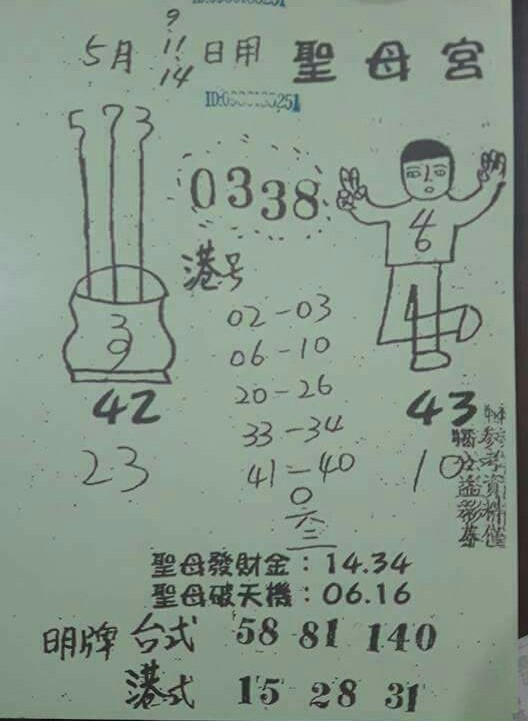 5月 9.11.14 日用 聖母宮
573
0338
港号
02-03
06-10
20-26
33-34
41-40
0
六
三
46
39
42
43
23
10
參考資料僅
聖母發財金:14.34
聖母破天機:06.16
明牌 台式 58 81 140
港式 15 28 31